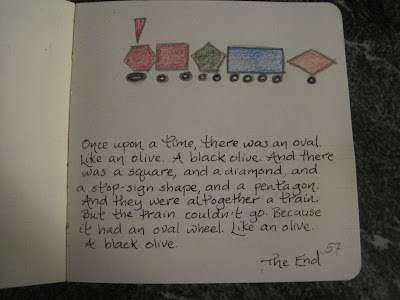 Once upon a time, there was an oval.
Like an olive. A black olive. And there
was a square, and a diamond, and
a stop-sign shape, and a pentagon.
And they were altogether a train.
But the train couldn't go. Because
it had an oval wheel. Like an olive.
A black olive.
57
The End